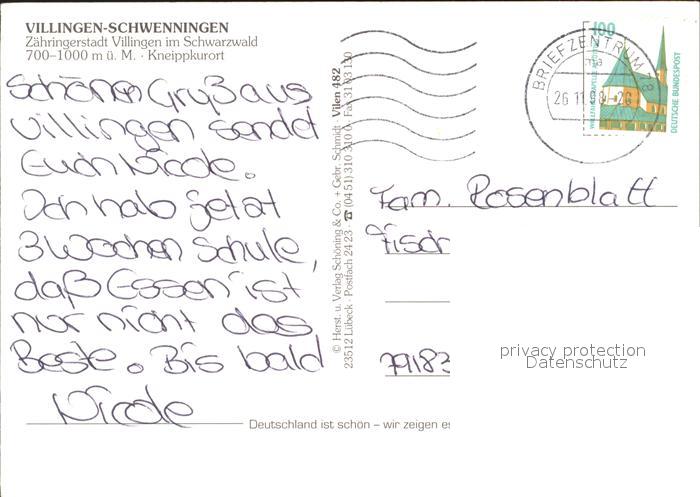 VILLINGEN-SCHWENNINGEN
Zähringerstadt Villingen im Schwarzwald
700–1000 m ü. M. · Kneippkurort
Schönen Gruß aus
Villingen sendet
Euch Nicole.
Ich hab jetzt
3 Wochen Schule,
daß Essen ist
nur nicht das
Beste. Bis bald
Nicole
Deutschland ist schön – wir zeigen es
© Herst. u. Verlag Schöning & Co. + Gebr. Schmidt · Vilen 482
23512 Lübeck · Postfach 24 23 · ☎ (04 51) 310 310 ·
BRIEFZENTRUM 78
26.11.
100
DEUTSCHE BUNDESPOST
Fam. Rosenblatt
Fisch
79183
privacy protection
Datenschutz